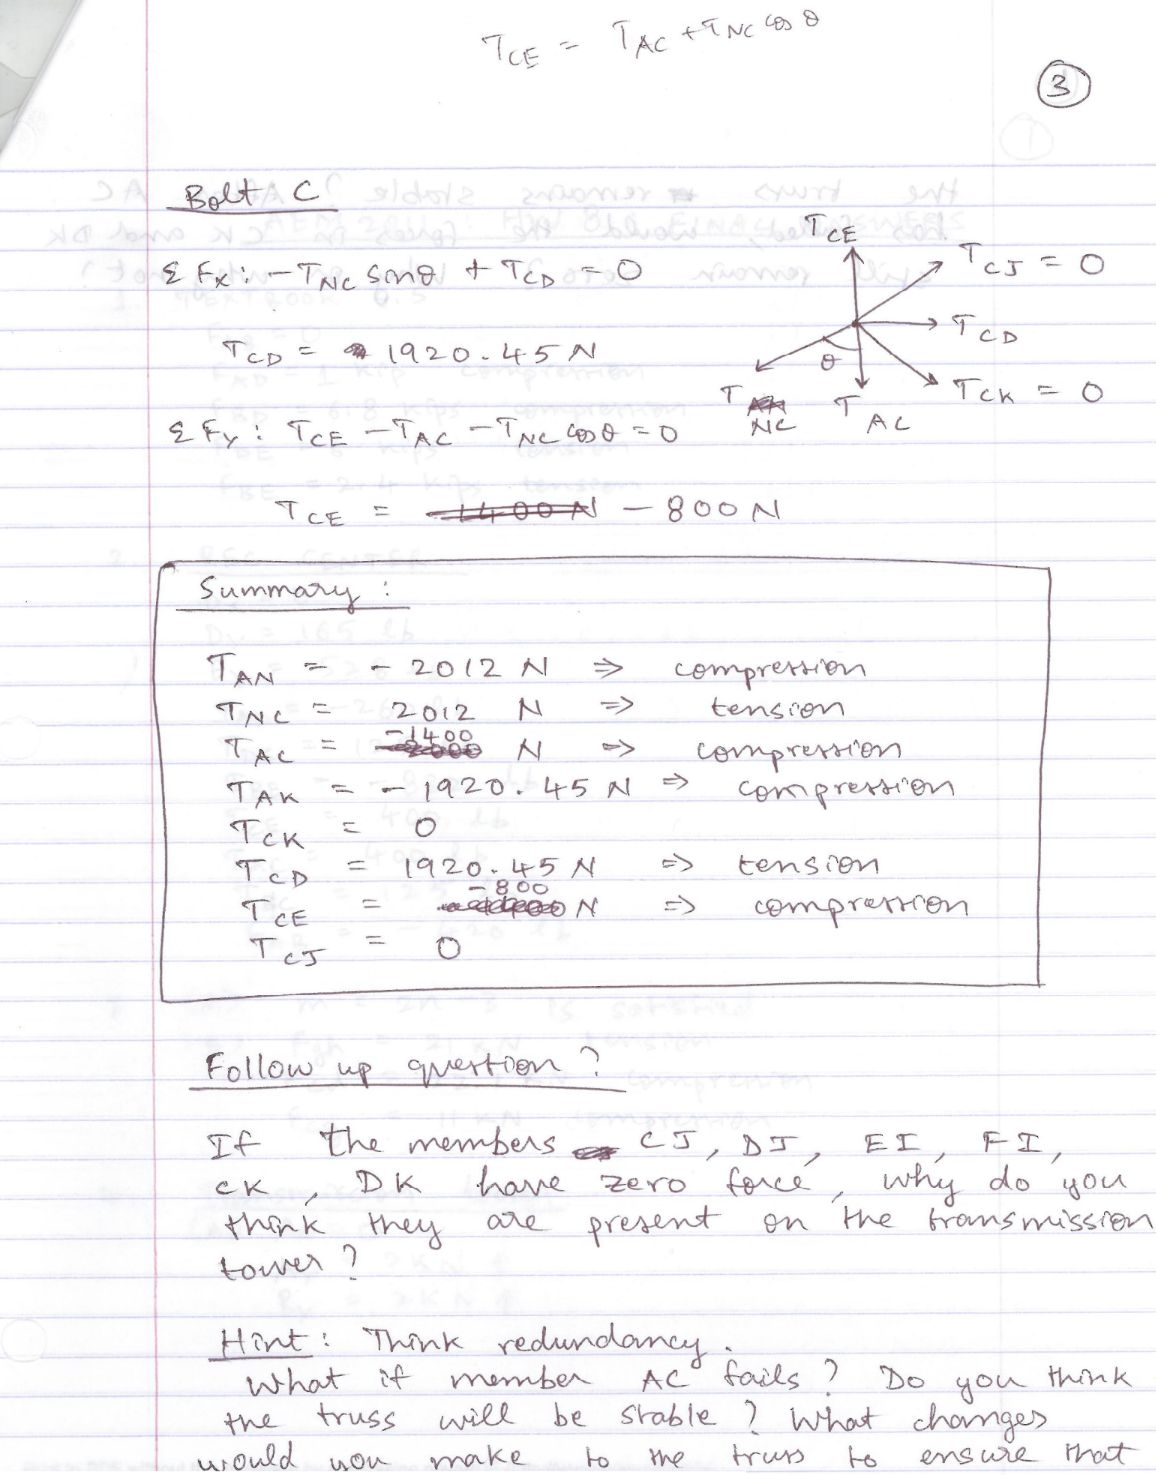 T_CE = T_AC + T_NC cos θ
3
Bolt C
Σ Fx : - T_NC sinθ + T_CD = 0
T_CD = 1920.45 N
Σ Fy : T_CE - T_AC - T_NC cos θ = 0
T_CE = 1400 N - 800 N
T_CE
T_CJ = 0
T_CD
θ
T_CK = 0
T_NC
T_AC
Summary :
T_AN = - 2012 N ⇒ compression
T_NC = 2012 N ⇒ tension
T_AC = -1400 N ⇒ compression
T_AK = - 1920.45 N ⇒ compression
T_CK = 0
T_CD = 1920.45 N ⇒ tension
T_CE = -800 N ⇒ compression
T_CJ = 0
Follow up question ?
If the members CJ, DJ, EI, FI,
CK, DK have zero force, why do you
think they are present on the transmission
tower ?
Hint : Think redundancy.
What if member AC fails ? Do you think
the truss will be stable ? What changes
would you make to the truss to ensure that